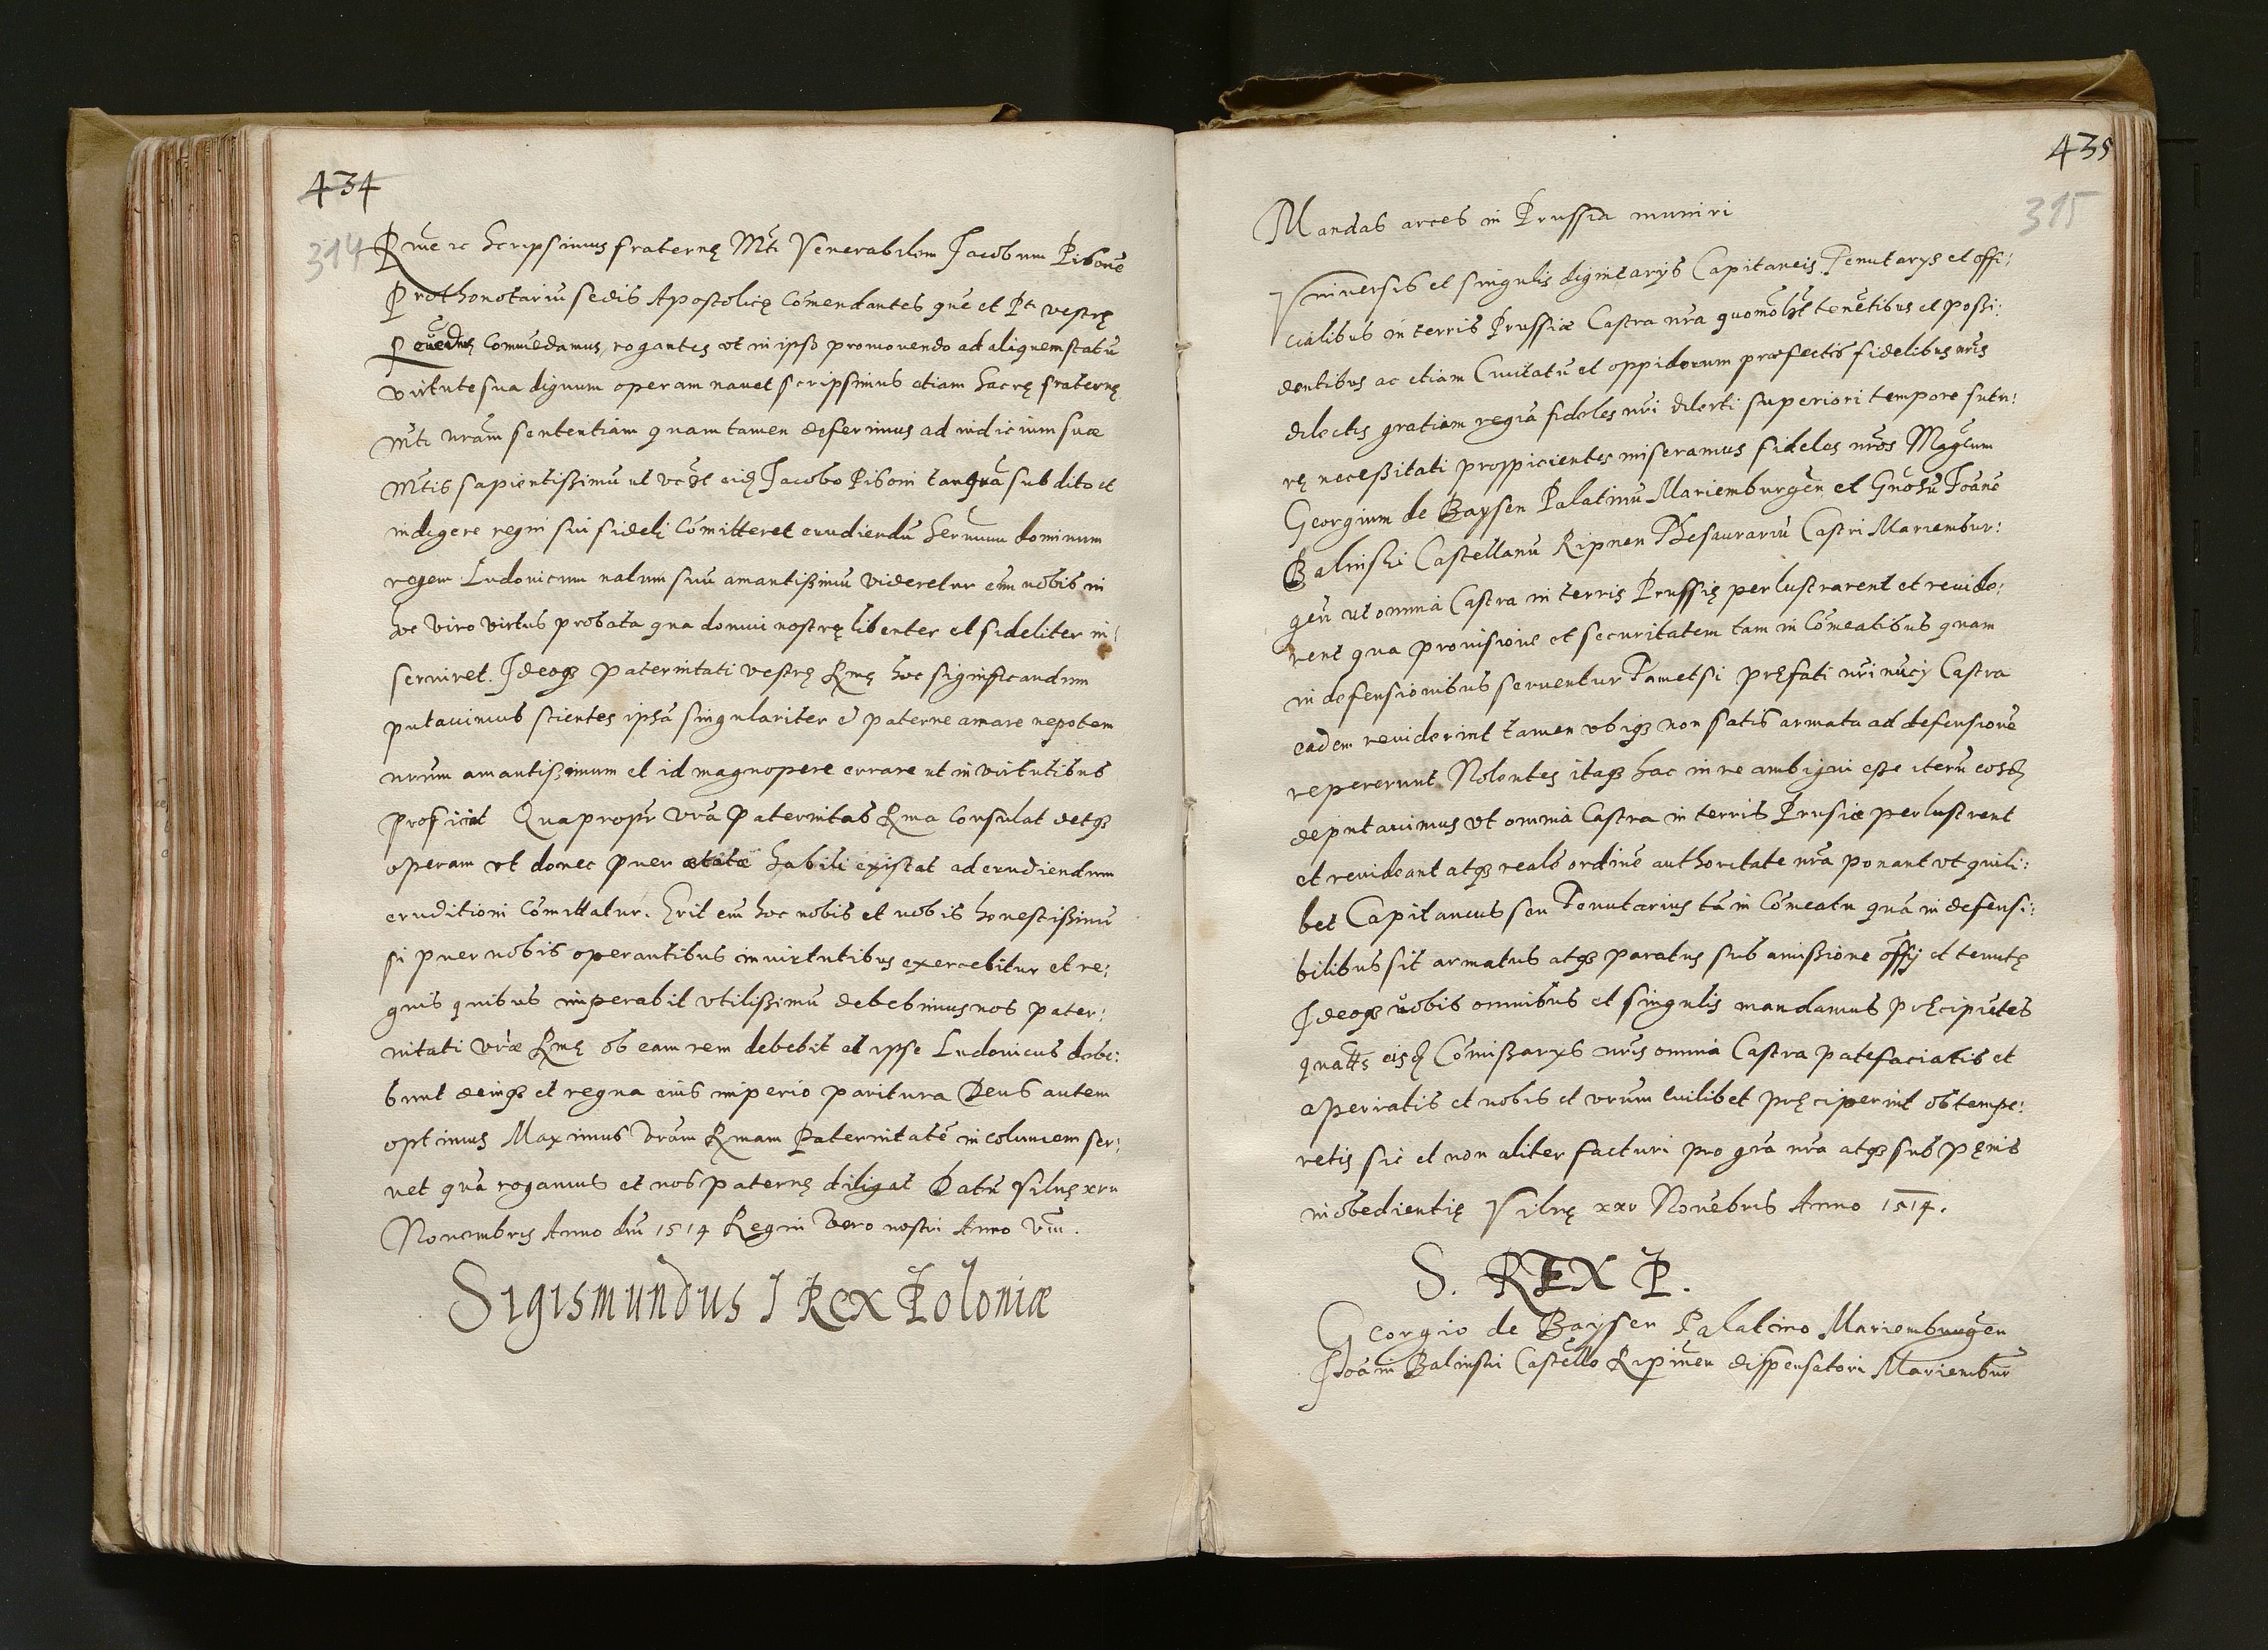 434
314
Rme ic Scripsimus fraternę Mti Venerabilem Jacobum Pisonē
Prothonotariū sedis Apostolicę Comendantes quē et Pti vestrę
Comēdamus, rogantes ut in ipso promouendo ad aliquem statū
virtute sua dignum operam nauet scripsimus etiam Sacrę fraternę
Mti nr̄am sententiam quam tamen deferimus ad iudicium suae
Mtis sapientissimū ut eid Jacobo Pisoni tanquā subdito et
indigere regni sui fideli Cōmitteret erudiendū Ser̄mum dominum
regem Ludouicum natum suū amantissimū Videretur em̄ nobis in
hoc viro virtus probata qua domui nostrę libenter et fideliter in:
seruiret. Ideoqz paternitati vestrę Rmę hoc significandum
putauimus scientes ipsā singulariter & paterne amare nepotem
nr̄um amantissimum et id magnopere curare ut in virtutibus
proficiat Quapropr̄ vr̄a Paternitas Rma Consulat detqz
operam ut donec puer ætate habili existat ad erudiendum
eruditioni Cōmittatur. Erit em̄ hoc nobis et uobis honestissimū
si puer nobis operantibus in uirtutibus exercebitur et re:
gnis quibus imperabit vtilissimū debebimus nos pater:
nitati vr̄æ Rmę ob eam rem debebit et ipse Ludouicus debe:
bunt deniqz et regna eius imperio paritura Deus autem
optimus Maximus Vr̄am Rmam Paternitatē incolumem ser:
uet quā rogamus et nos paternę diligat Datū Vilnę xxv
Nouembris Anno dnī 1514 Regni Vero nostri Anno Viii.
Sigismundus I Rex Poloniæ
435
315
Mandas arces in Prussia muniri
Vniuersis et singulis dignitarijs Capitaneis Tenutarijs et offi:
cialibus in terris Prussiæ Castra nr̄a quomōlt tenētibus et possi:
dentibus ac etiam Ciuitatū et oppidorum præfectis fidelibus nr̄is
dilectis gratiam regiā fideles nr̄i dilecti superiori tempore futu:
rę necessitati prospicientes miseramus fideles nr̄os Magcum
Georgium de Baysen Palatinū Mariemburgen̄ et Gn̄osū Joanē
Balinski Castellanū Ripnen Thesaurariū Castri Mariembur:
gen̄ ut omnia Castra in terris Prussię perlustrarent et reuide:
rent qua prouisione et securitatem tam in Cōmeatibus quam
in defensionibus seruentur Tametsi pręfati nr̄i nūcij Castra
eadem reuiderint tamen vbiqz non satis armata ad defensionē
repererunt Nolentes itaqz hac in re ambigui esse iterū eosd
deputauimus vt omnia Castra in terris Prusiæ perlustrent
et reuideant atqz reale ordinē authoritate nr̄a ponant vt quili:
bet Capitaneus seu Tenutarius tā in Cōmeatu quā in defensi:
bilibus sit armatus atqz paratus sub amissione offij et tenutę
Ideoqz uobis omnibus et singulis mandamus pręcipiētes
quatts eisd Cōmissarijs nr̄is omnia Castra patefaciatis et
aperiatis et nobis et vrum cuilibet pręciperint obtempe:
retis sic et non aliter facturi pro gr̄a nr̄a atqz sub pęnis
inobedientię Vilnę xxv Nouēbris Anno 1514.
S. REX P.
Georgio de Baysen Palatino Mariemburgen
Joāni Balinski Castello Ripinen dispensatori Mariembur̄